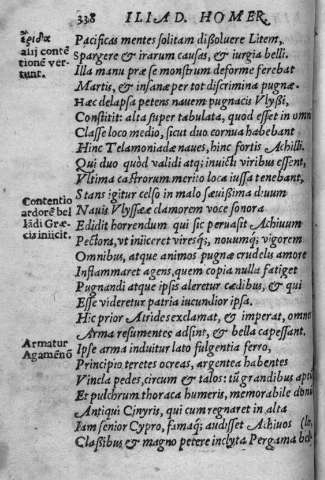 338 ILIAD. HOMER.
ἔριδα
alij contē
tionē ver-
tunt.
Pacificas mentes solitam dißoluere Litem,
Spargere & irarum causas, & iurgia belli.
Illa manu præ se monstrum deforme ferebat
Martis, & insanæ per tot discrimina pugnæ.
Hæc delapsa petens nauem pugnacis Vlyßi,
Constitit: alta super tabulata, quod esset in omni
Classe loco medio, sicut duo cornua habebant
Hinc Telamoniadæ naues, hinc fortis Achilli.
Qui duo quòd validi atq; inuicti viribus essent,
Vltima castrorum merito loca iussa tenebant,
Stans igitur celso in malo sæuißima diuum
Contentio
ardorē bel
li ad i Græ-
cis iniicit.
Nauis Vlyssææ clamorem voce sonora
Edidit horrendum qui sic peruasit Achiuum
Pectora, vt iniiceret viresq;, nouumq; vigorem
Omnibus, atque animos pugnæ crudelis amore
Inflammaret agens, quem copia nulla fatiget
Pugnandi atque ipsis aleretur cædibus, & qui
Esse videretur patria iucundior ipsa.
Hic prior Atrides exclamat, & imperat, omnes
Arma resumentes adsint, & bella capessant.
Armatur
Agamēnō
Ipse arma induitur lato fulgentia ferro,
Principio teretes ocreas, argentea habentes
Vincla pedes, circum & talos: tū grandibus apt
Et pulchrum thoraca humeris, memorabile donū
Antiqui Cinyris, qui cum regnaret in alta
Iam senior Cypro, famaq; audisset Achiuos
Claßibus & magno petere inclyta Pergama